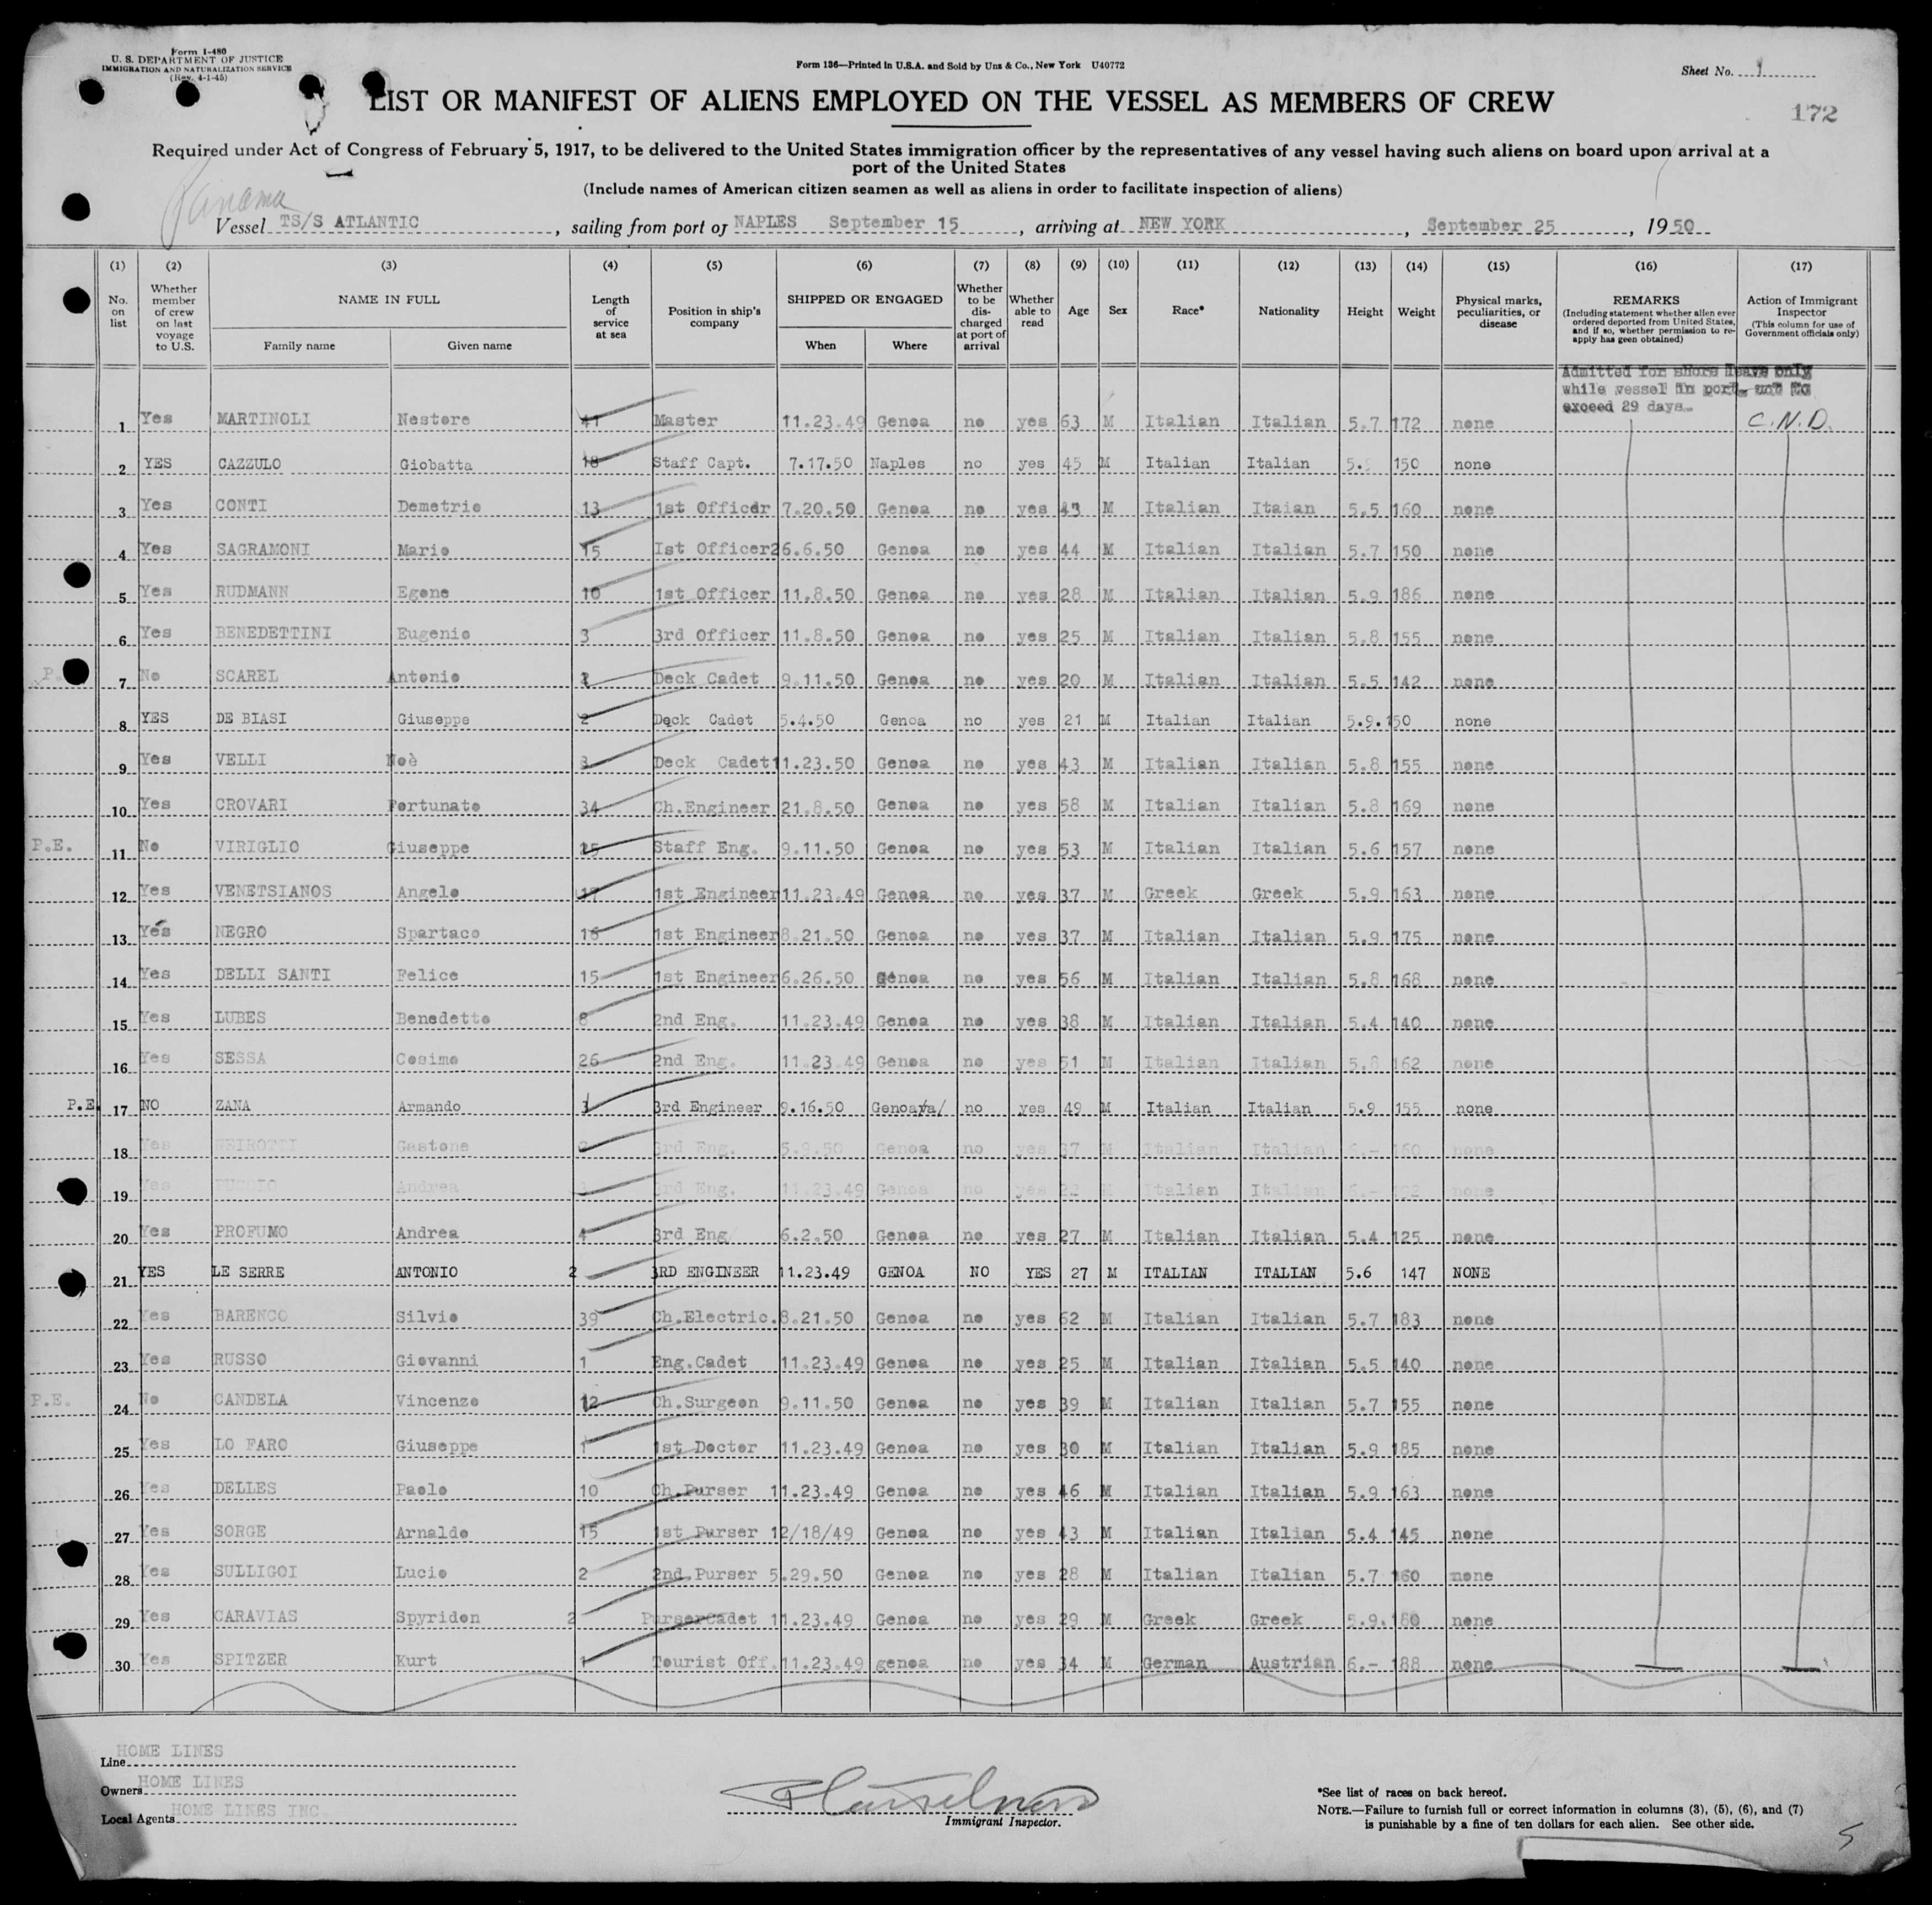 Form I-480
U. S. DEPARTMENT OF JUSTICE
IMMIGRATION AND NATURALIZATION SERVICE
(Rev. 4-1-45)
Form 136—Printed in U.S.A. and Sold by Unz & Co., New York U40772
Sheet No. 1
LIST OR MANIFEST OF ALIENS EMPLOYED ON THE VESSEL AS MEMBERS OF CREW
172
Required under Act of Congress of February 5, 1917, to be delivered to the United States immigration officer by the representatives of any vessel having such aliens on board upon arrival at a
port of the United States
(Include names of American citizen seamen as well as aliens in order to facilitate inspection of aliens)
Panama
Vessel TS/S ATLANTIC, sailing from port of NAPLES September 15, arriving at NEW YORK, September 25, 1950
(1) (2) (3) (4) (5) (6) (7) (8) (9) (10) (11) (12) (13) (14) (15) (16) (17)
No. on list
Whether member of crew on last voyage to U.S.
NAME IN FULL
Family name Given name
Length of service at sea
Position in ship's company
SHIPPED OR ENGAGED
When Where
Whether to be discharged at port of arrival
Whether able to read
Age
Sex
Race*
Nationality
Height
Weight
Physical marks, peculiarities, or disease
REMARKS
(Including statement whether alien ever ordered deported from United States, and if so, whether permission to re-apply has geen obtained)
Action of Immigrant Inspector
(This column for use of Government officials only)
Admitted for shore leave only
while vessel in port, not to
exceed 29 days.
1 Yes MARTINOLI Nestore 41 Master 11.23.49 Genoa no yes 63 M Italian Italian 5.7 172 none C.N.D.
2 YES CAZZULO Giobatta 18 Staff Capt. 7.17.50 Naples no yes 45 M Italian Italian 5. 150 none
3 Yes CONTI Demetrio 13 1st Officer 7.20.50 Genoa no yes 43 M Italian Itaian 5.5 160 none
4 Yes SAGRAMONI Mario 15 Ist Officer 26.6.50 Genoa no yes 44 M Italian Italian 5.7 150 none
5 Yes RUDMANN Egone 10 1st Officer 11.8.50 Genoa no yes 28 M Italian Italian 5.9 186 none
6 Yes BENEDETTINI Eugenio 3 3rd Officer 11.8.50 Genoa no yes 25 M Italian Italian 5.8 155 none
7 No SCAREL Antonio Deck Cadet 9.11.50 Genoa no yes 20 M Italian Italian 5.5 142 none
8 YES DE BIASI Giuseppe 2 Deck Cadet 5.4.50 Genoa no yes 21 M Italian Italian 5.9.150 none
9 Yes VELLI Noè 3 Deck Cadet 11.23.50 Genoa no yes 43 M Italian Italian 5.8 155 none
10 Yes CROVARI Fortunato 34 Ch.Engineer 21.8.50 Genoa no yes 58 M Italian Italian 5.8 169 none
P.E. 11 No VIRIGLIO Giuseppe 25 Staff Eng. 9.11.50 Genoa no yes 53 M Italian Italian 5.6 157 none
12 Yes VENETSIANOS Angelo 17 1st Engineer 11.23.49 Genoa no yes 37 M Greek Greek 5.9 163 none
13 Yes NEGRO Spartaco 16 1st Engineer 8.21.50 Genoa no yes 37 M Italian Italian 5.9 175 none
14 Yes DELLI SANTI Felice 15 1st Engineer 6.26.50 Genoa no yes 56 M Italian Italian 5.8 168 none
15 Yes LUBES Benedetto 8 2nd Eng. 11.23.49 Genoa no yes 38 M Italian Italian 5.4 140 none
16 Yes SESSA Cosimo 26 2nd Eng. 11.23.49 Genoa no yes 51 M Italian Italian 5.8 162 none
P.E. 17 NO ZANA Armando 3 3rd Engineer 9.16.50 Genoa no yes 49 M Italian Italian 5.9 155 none
18 Yes NEIROTTI Gastone 3rd Eng. 5.9.50 Genoa no yes 37 M Italian Italian 6.- 160 none
19 Yes Andrea 3rd Eng. 11.23.49 Genoa no yes M Italian Italian 6.- none
20 Yes PROFUMO Andrea 4 3rd Eng 6.2.50 Genoa no yes 27 M Italian Italian 5.4 125 none
21 YES LE SERRE ANTONIO 2 3RD ENGINEER 11.23.49 GENOA NO YES 27 M ITALIAN ITALIAN 5.6 147 NONE
22 Yes BARENCO Silvio 39 Ch.Electric. 8.21.50 Genoa no yes 62 M Italian Italian 5.7 183 none
23 Yes RUSSO Giovanni 1 Eng.Cadet 11.23.49 Genoa no yes 25 M Italian Italian 5.5 140 none
P.E. 24 No CANDELA Vincenzo 12 Ch.Surgeon 9.11.50 Genoa no yes 39 M Italian Italian 5.7 155 none
25 Yes LO FARO Giuseppe 1 1st Doctor 11.23.49 Genoa no yes 30 M Italian Italian 5.9 185 none
26 Yes DELLES Paolo 10 Ch.Purser 11.23.49 Genoa no yes 46 M Italian Italian 5.9 163 none
27 Yes SORGE Arnaldo 15 1st Purser 12/18/49 Genoa no yes 43 M Italian Italian 5.4 145 none
28 Yes SULLIGOI Lucio 2 2nd Purser 5.29.50 Genoa no yes 28 M Italian Italian 5.7 160 none
29 Yes CARAVIAS Spyridon 2 PurserCadet 11.23.49 Genoa no yes 29 M Greek Greek 5.9. 180 none
30 Yes SPITZER Kurt 1 Tourist Off. 11.23.49 genoa no yes 34 M German Austrian 6.- 188 none
Line HOME LINES
Owners HOME LINES
Local Agents HOME LINES INC
Immigrant Inspector.
*See list of races on back hereof.
NOTE.—Failure to furnish full or correct information in columns (3), (5), (6), and (7)
is punishable by a fine of ten dollars for each alien. See other side.
5